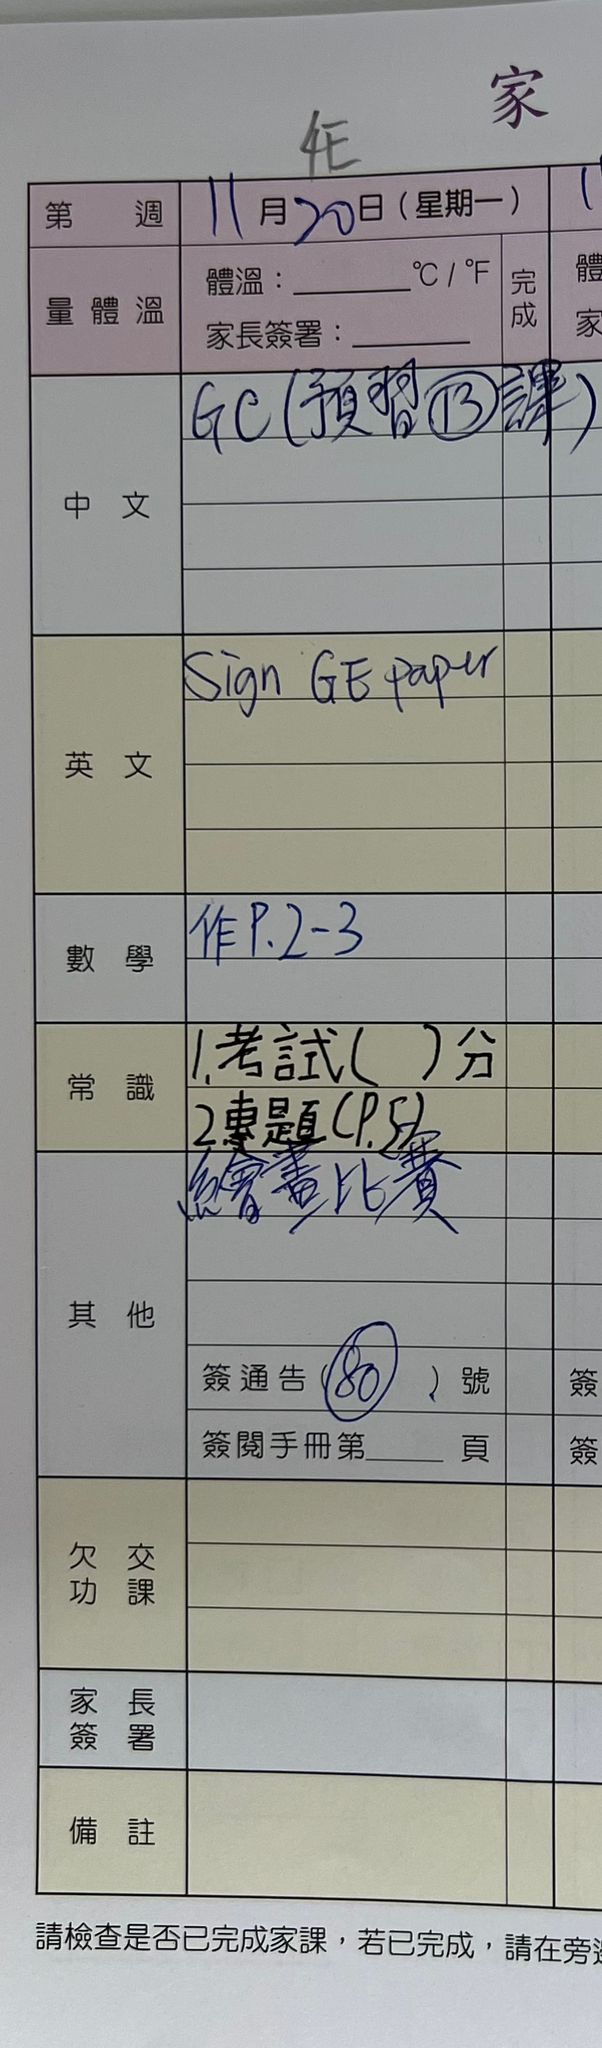 家
4E
第 週 11月20日(星期一)
量體溫 體溫：______°C/°F 完成
家長簽署：______
中文 GC(預習⑬課)
英文 Sign GE paper
數學 作P.2-3
常識 1.考試( )分
2.專題(P.5)
其他 繪畫比賽
簽通告(80)號 簽
簽閱手冊第____頁 簽
欠交功課
家長簽署
備註
請檢查是否已完成家課，若已完成，請在旁